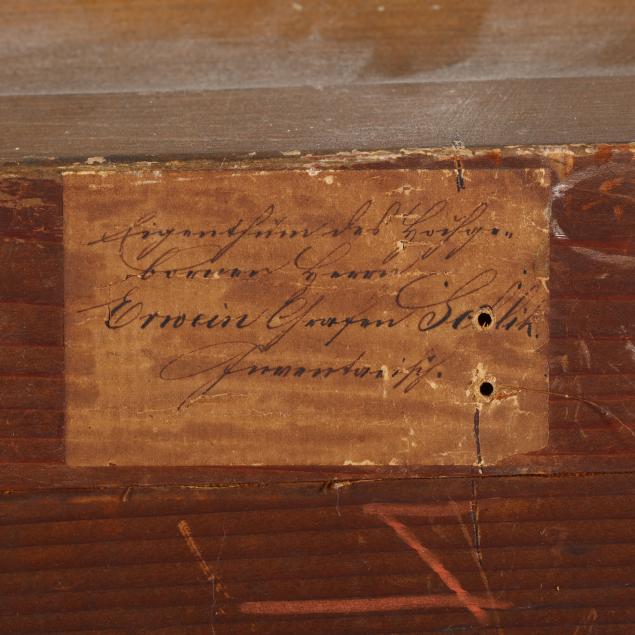 Eigenthum des Hochge-
bornen Herrn
Erwein Grafen
Inventarisch.